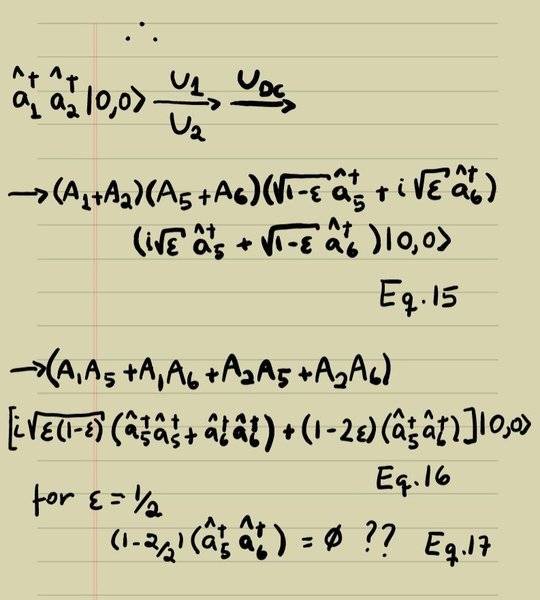 ∴
â₁† â₂† |0,0⟩ U₁/U₂ → U_DC →
→(A₁+A₂)(A₅+A₆)(√(1-ε) â₅† + i√ε â₆†)
(i√ε â₅† + √(1-ε) â₆†)|0,0⟩
Eq.15
→(A₁A₅ + A₁A₆ + A₂A₅ + A₂A₆)
[i√(ε(1-ε)) (â₅†â₅† + â₆†â₆†) + (1-2ε)(â₅†â₆†)]|0,0⟩
Eq.16
for ε = 1/2
(1-2/2)(â₅† â₆†) = ∅ ?? Eq.17